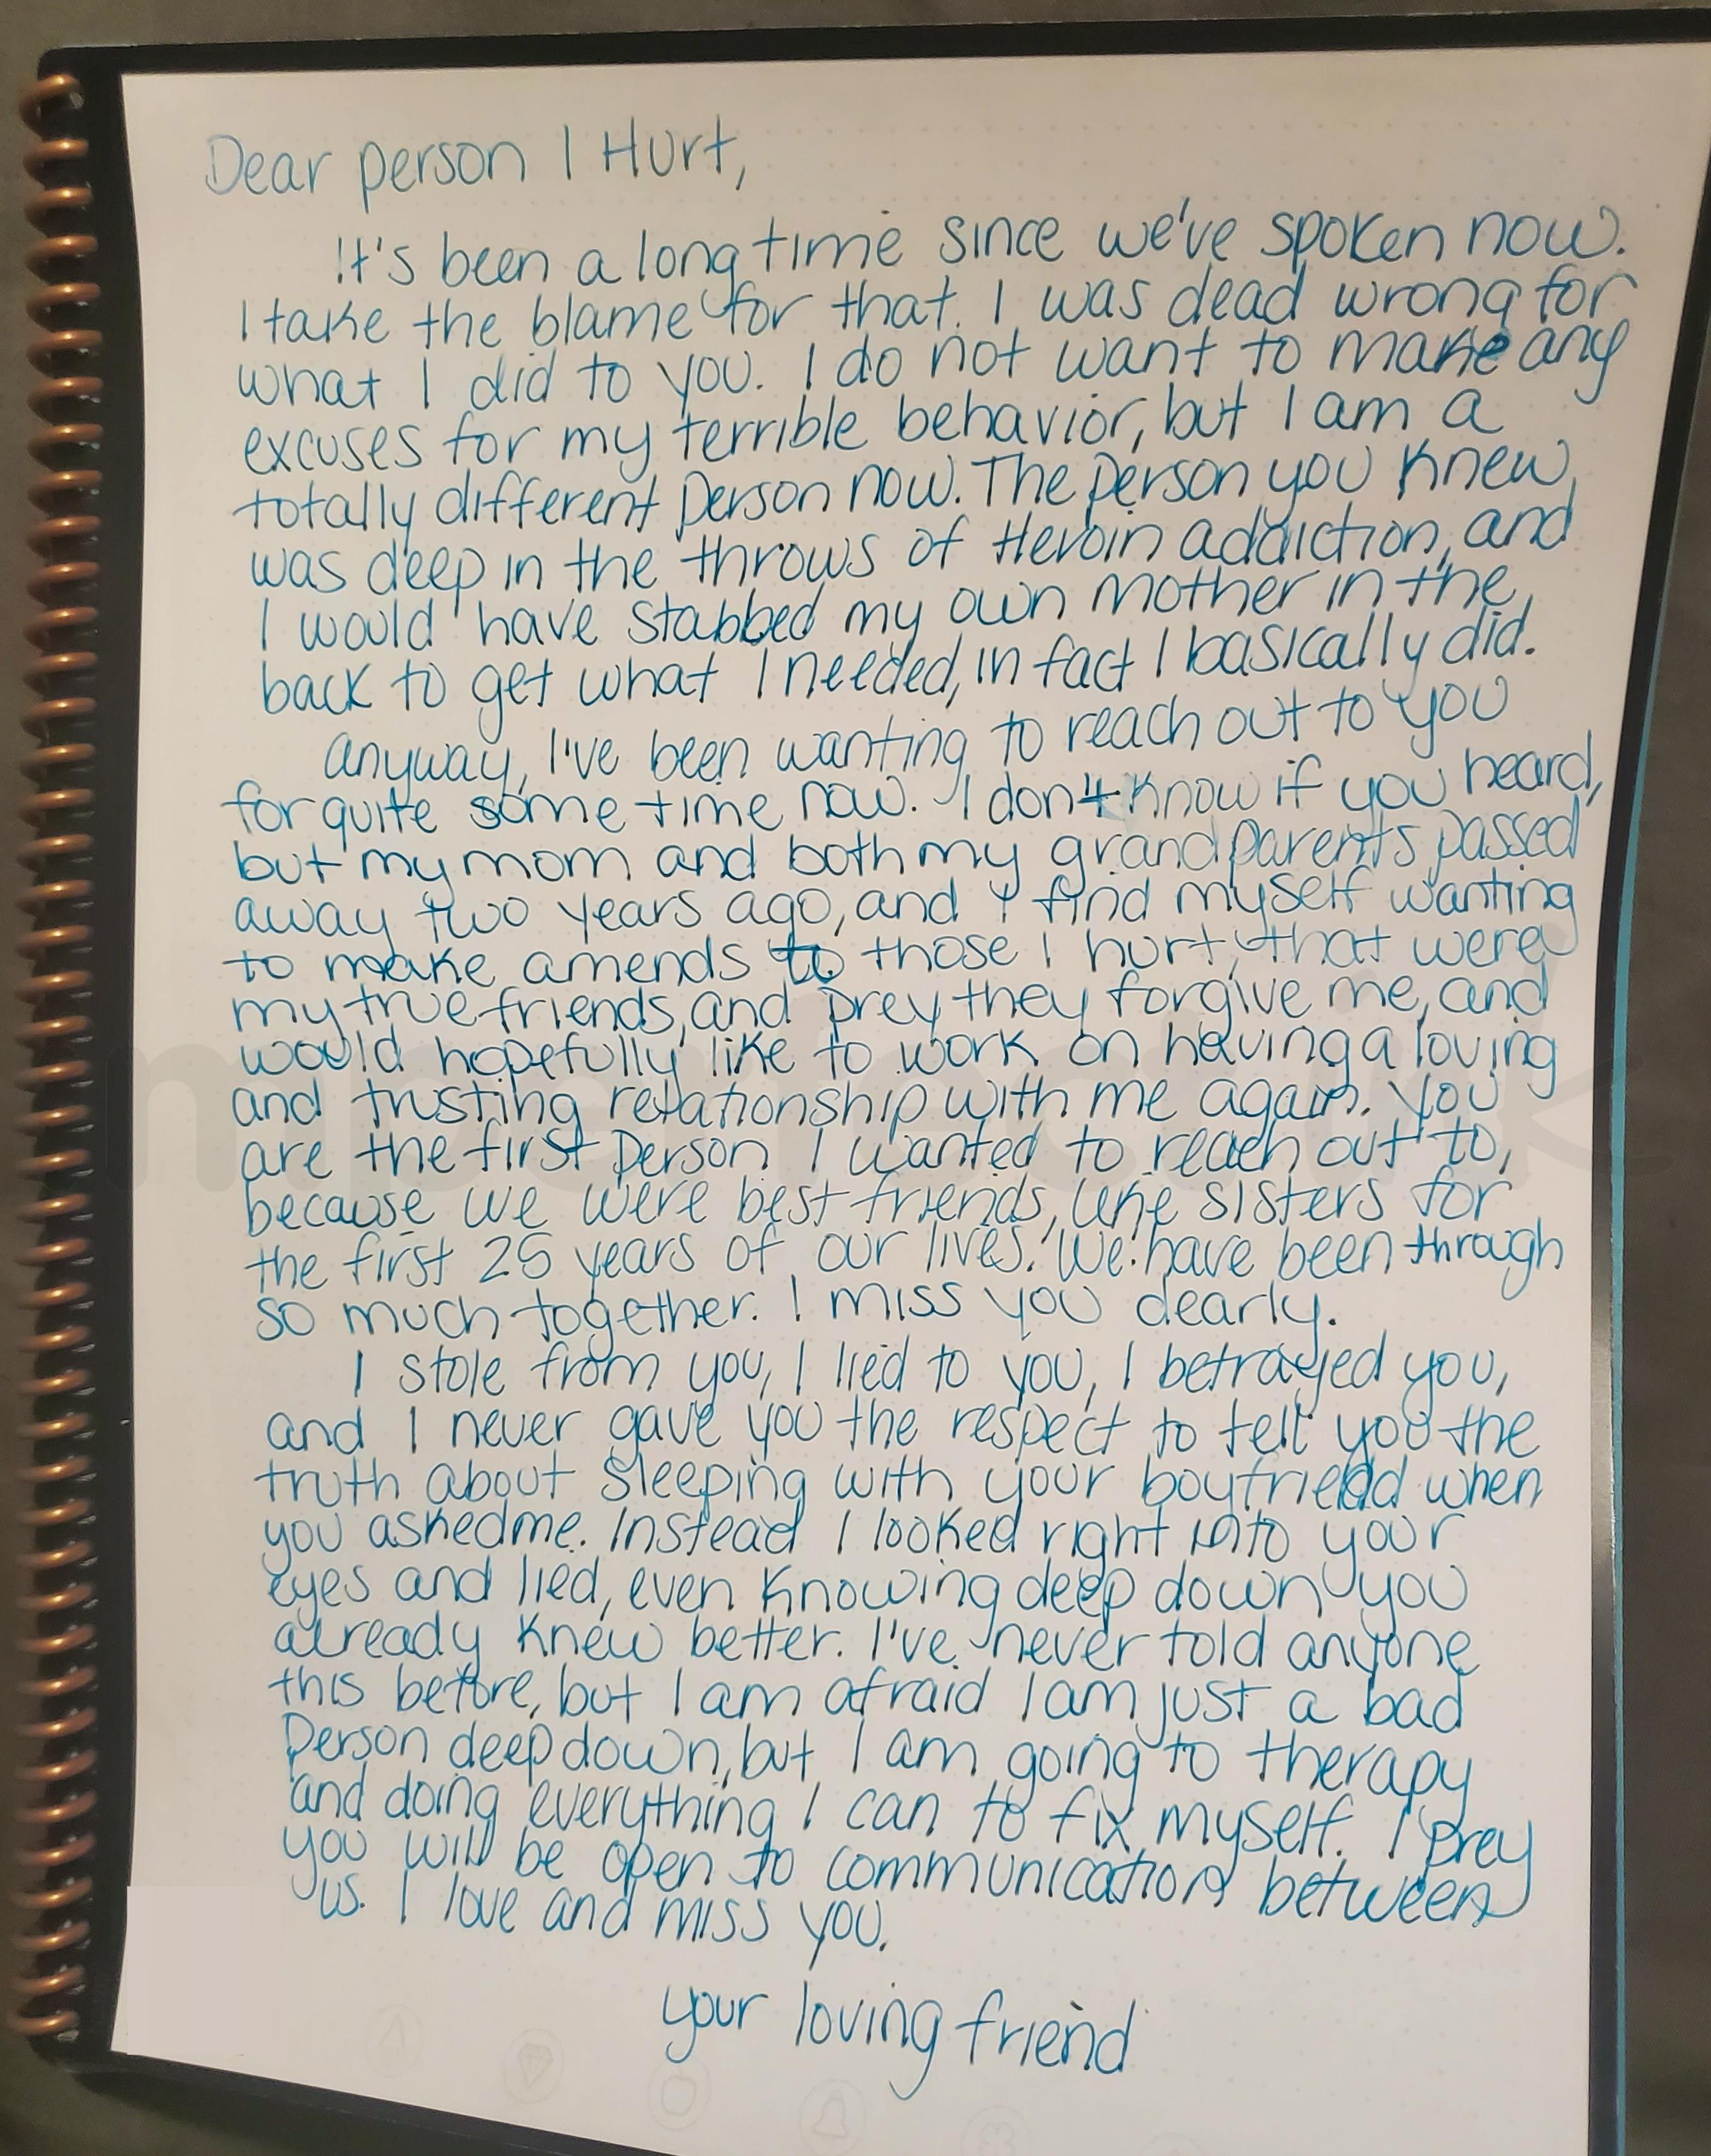 Dear person I Hurt,
It's been a long time since we've spoken now.
I take the blame for that. I was dead wrong for
what I did to you. I do not want to make any
excuses for my terrible behavior, but I am a
totally different person now. The person you knew,
was deep in the throws of Heroin addiction, and
I would have stabbed my own mother in the
back to get what I needed, in fact I basically did.
Anyway, I've been wanting to reach out to you
for quite some time now. I don't know if you heard,
but my mom and both my grandparents passed
away two years ago, and I find myself wanting
to make amends to those I hurt, that were
my true friends, and prey they forgive me, and
would hopefully like to work on having a loving
and trusting relationship with me again. You
are the first person I wanted to reach out to,
because we were best friends, like sisters for
the first 25 years of our lives. We have been through
so much together. I miss you dearly.
I stole from you, I lied to you, I betrayed you,
and I never gave you the respect to tell you the
truth about sleeping with your boyfriend when
you asked me. Instead I looked right into your
eyes and lied, even knowing deep down you
already knew better. I've never told anyone
this before, but I am afraid I am just a bad
person deep down, but I am going to therapy
and doing everything I can to fix myself. I prey
you will be open to communication between
us. I love and miss you.
your loving friend